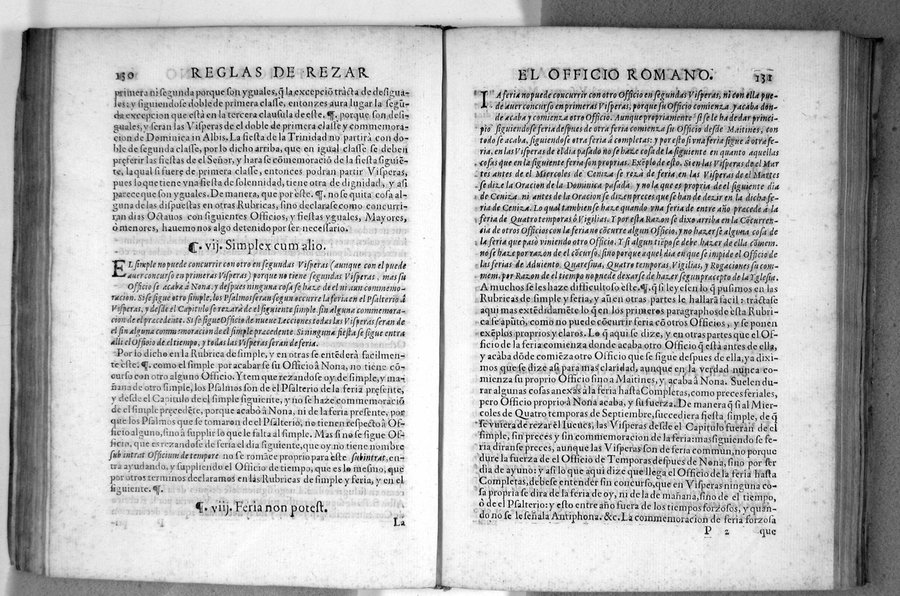 130 REGLAS DE REZAR
primera ni segunda porque son yguales, q̃ la excepció tracta de desigua-
les: y siguiendose doble de primera classe, entonces aura lugar la segũ
da excepcion que està en la tercera clausula de este. ¶. porque son desi-
guales, y seran las Visperas de el doble de primera classe y commemora-
cion de Dominica in Albis. La fiesta de la Trinidad no partirà con do-
ble de segunda classe, por lo dicho arriba, que en igual classe se deben
preferir las fiestas de el Señor, y harase cõmemoració de la fiesta siguiẽ-
te, la qual si fuere de primera classe, entonces podran partir Visperas,
pues lo que tiene vna fiesta de solennidad, tiene otra de dignidad, y asi
parece que son yguales. De manera, que por este. ¶. no se quita cosa al-
guna de las dispuestas en otras Rubricas, sino declarase como concurri-
ran dias Octauos con siguientes Officios, y fiestas yguales, Mayores,
ò menores, hauemos nos algo detenido por ser necessario.
¶. vij. Simplex cum alio.
EL simple no puede concurrir con otro en segundas Visperas (aunque con el puede
auer concurso en primeras Visperas) porque no tiene segundas Visperas, mas su
Officio se acaba à Nona, y despues ninguna cosa se haze de el ni aun commemo-
racion. Si se sigue otro simple, los Psalmos seran segun occurre la feria en el Psalterio à
Visperas, y desde el Capitulo se rezarà de el siguiente simple, sin alguna commemora-
cion de el precedente. Si se sigue Officio de nueue Lecciones todas las Visperas seran de
el sin alguna commemoracion de el simple precedente. Si ninguna fiesta se sigue entra
alli el Officio de el tiempo, y todas las Visperas seran de feria.
Por lo dicho en la Rubrica de simple, y en otras se entẽderà facilmen-
te este. ¶. como el simple por acabarse su Officio à Nona, no tiene cõ-
curso con otro alguno Officio. Y tem que rezandose oy de simple, y ma-
ñana de otro simple, los Psalmos son de el Psalterio de la feria presente,
y desde el Capitulo de el simple siguiente, y no se haze commemoració
de el simple precedẽte, porque acabò à Nona, ni de la feria presente, por
que los Psalmos que se tomaron de el Psalterio, no tienen respecto à Of-
ficio alguno, sino à supplir lo que le falta al simple. Mas si no se sigue Of-
ficio, que es rezandose de feria al dia siguiente, que oy no tiene nombre
sub intrat Officium de tempore no se romãce proprio para este subintrat, en-
tra ayudando, y suppliendo el Officio de tiempo, que es lo mesmo, que
por otros terminos declaramos en las Rubricas de simple y feria, y en el
siguiente. ¶.
¶. viij. Feria non potest.
La
EL OFFICIO ROMANO. 131
LA feria no puede concurrir con otro Officio en segundas Visperas, ni con ella pue-
de auer concurso en primeras Visperas, porque su Officio comienza y acaba don-
de acaba y comienza otro Officio. Aunque propriamente si se le ha de dar princi-
pio siguiendose feria despues de otra feria comienza su Officio desde Maitines, con
todo se acaba, siguiendose otra feria à completas: y por esto si vna feria sigue à otra fe-
ria, en las Visperas de el dia pasado no se haze cosa de la siguiente en quanto aquellas
cosas que en la siguiente feria son proprias. Exẽplo de esto. Si en las Visperas de el Mar
tes antes de el Miercoles de Ceniza se reza de feria en las Visperas de el Martes
se dize la Oracion de la Dominica pasada, y no la que es propria de el siguiente dia
de Ceniza. ni antes de la Oracion se dizen preces, que se han de dezir en la dicha fe-
ria de Ceniza. Lo qual tambien se haze quando vna feria de entre año precede à la
feria de Quatro temporas ò Vigilias. Y por esta Razon se dixo arriba en la Cõcurren-
cia de otros Officios con la feria no cõcurre algun Officio, y no hazerse alguna cosa de
la feria que pasò viniendo otro Officio. Y si algun tiẽpo se debe hazer de ella cõmem.
no se haze por razon de el cõcurso, sino porque aquel dia en que se impide el Officio de
las ferias de Aduiento, Quaresma, Quatro temporas, Vigilias, y Rogaciones su com-
mem. por Razon de el tiempo no puede dexarse de hazer segun precepto de la Yglesia.
A muchos se les haze difficultoso este. ¶. q̃ si leyesen lo q̃ pusimos en las
Rubricas de simple y feria, y aũ en otras partes le hallarà facil: tractase
aqui mas extẽdidamẽte lo q̃ en los primeros paragraphos de esta Rubri-
ca se apũtò, como no puede cõcurrir feria cõ otros Officios, y se ponen
exẽplos proprios y claros. Lo q̃ aqui se dize, y en otras partes que el Of-
ficio de la feria comienza donde acaba otro Officio q̃ està antes de ella,
y acaba dõde comiẽza otro Officio que se sigue despues de ella, ya dixi-
mos que se dize asi para mas claridad, aunque en la verdad nunca co-
mienza su proprio Officio sino à Maitines, y acaba à Nona. Suelen du-
rar algunas cosas anexas à la feria hasta Completas, como preces feriales,
pero Officio proprio à Nona acaba, y su fuerza. De manera q̃ si al Mier-
coles de Quatro temporas de Septiembre, succediera fiesta simple, de q̃
se vuiera de rezar el Iueues, las Visperas desde el Capitulo fueran de el
simple, sin preces y sin commemoracion de la feria: mas siguiendose fe-
ria diranse preces, aunque las Visperas son de feria commun, no porque
dure la fuerza de el Officio de Temporas despues de Nona, sino por ser
dia de ayuno: y asi lo que aqui dize que llega el Officio de la feria hasta
Completas, debese entender sin concurso, que en Visperas ninguna co-
sa propria se dira de la feria de oy, ni de la de mañana, sino de el tiempo,
ò de el Psalterio: y esto entre año fuera de los tiempos forzosos, y quan-
do no se le señala Antiphona. &c. La commemoracion de feria forzosa
P 2 que